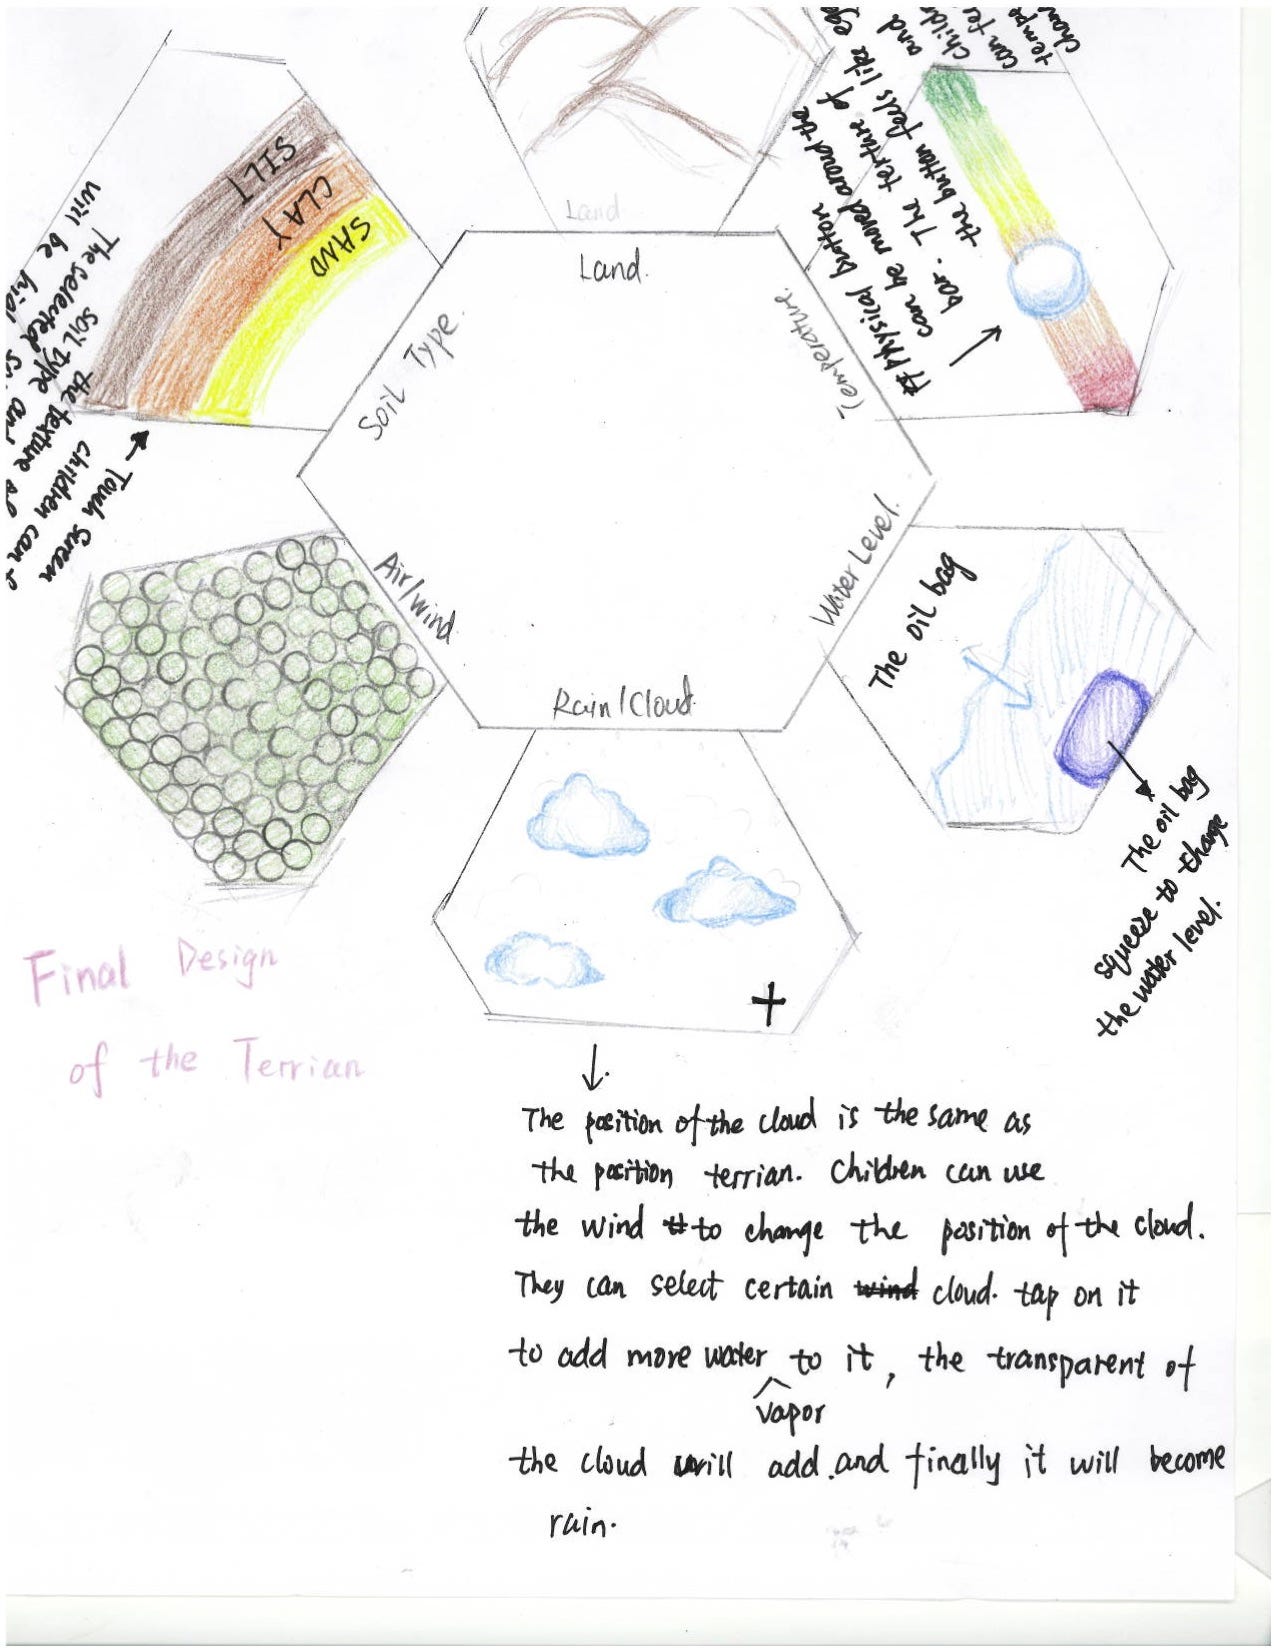 Land
Land.
SILT
CLAY
SAND
Soil Type.
Temperature.
Water Level.
Rain/Cloud
Air/wind
Touch Screen
The selected
soil type and
the texture of
children can
will be
physical button
can be moved around the
bar. The terture of
the button feels like
and
The oil bag
The oil bag
squeeze to change
the water level.
Final Design
of the Terrian
The position of the cloud is the same as
the position terrian. Children can use
the wind to change the position of the cloud.
They can select certain wind cloud. tap on it
to add more water to it, the transparent of
vapor
the cloud will add. and finally it will become
rain.